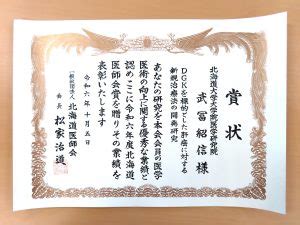 賞状
北海道大学大学院医学研究院
武冨紹信様
DGKを標的とした肝癌に対する
新規治療法の開発研究
あなたの研究を本会会員の医学
医術の向上に関する優秀な業績と
認めここに令和六年度北海道
医師会賞を贈りその業績を
表彰いたします
令和六年十月五日
一般社団法人北海道医師会
会長 松家治道